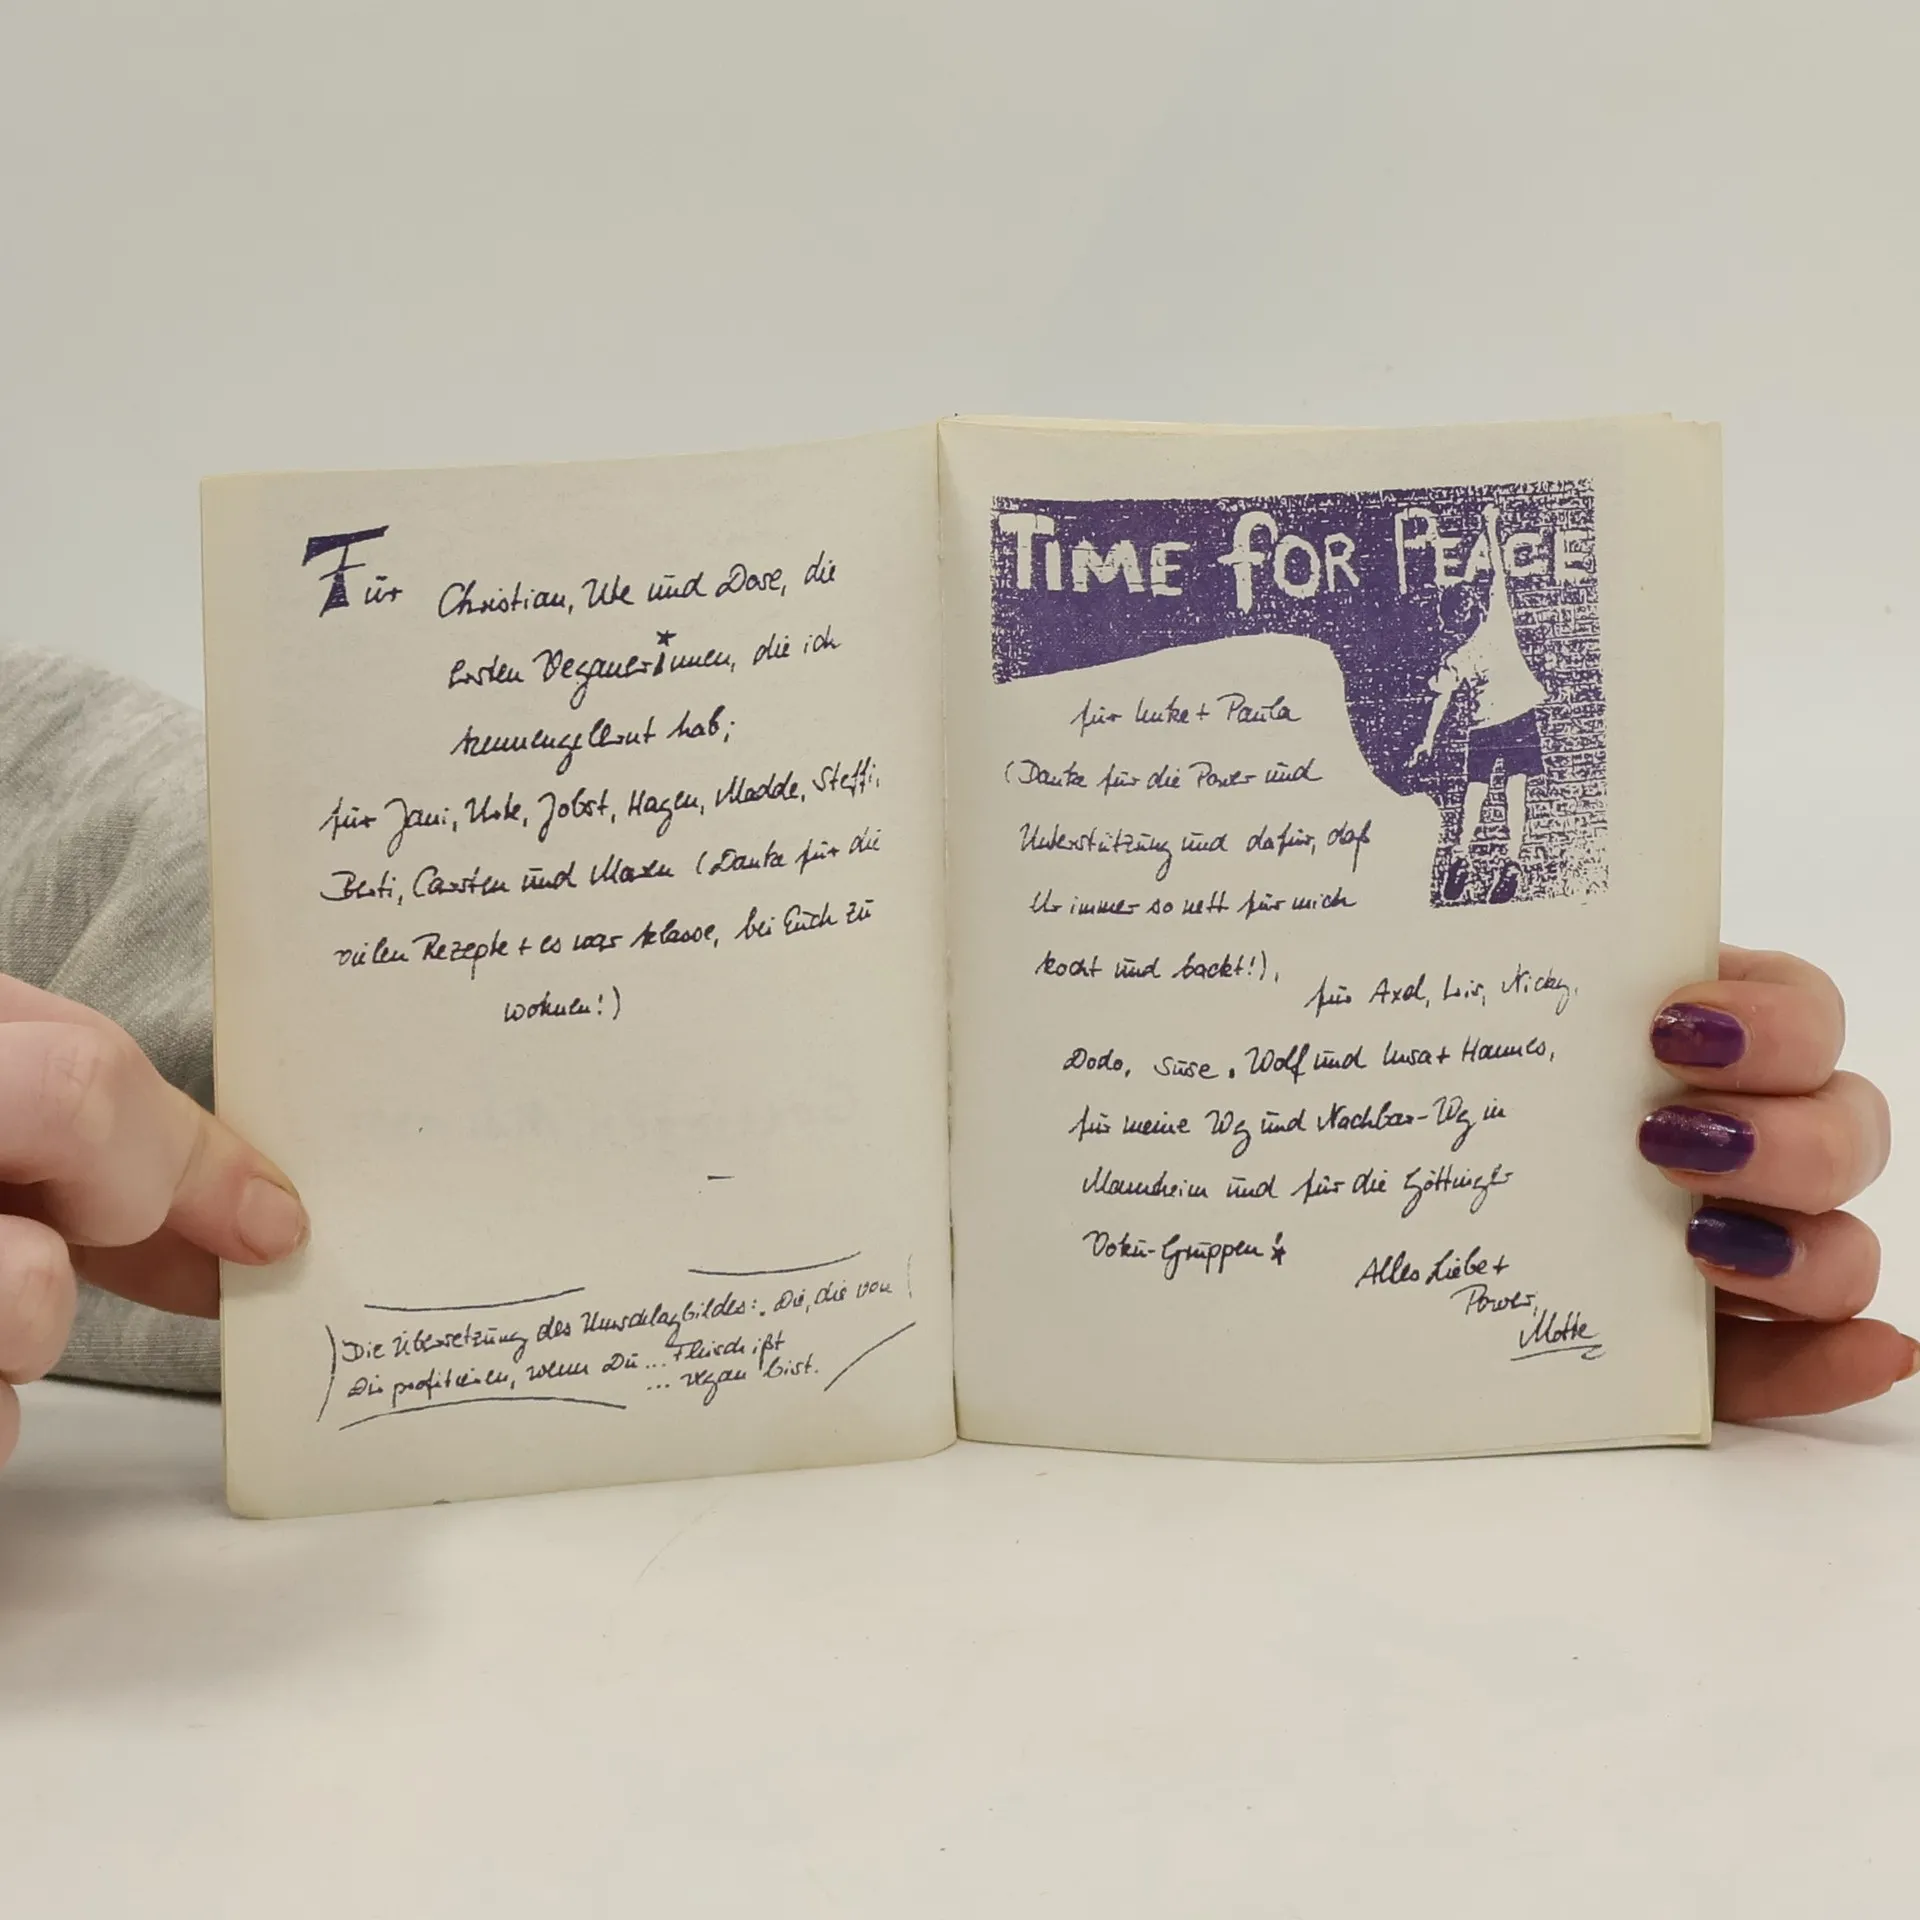 Für Christian, Ute und Dose, die
ersten Veganer*innen, die ich
kennengelernt hab;
für Jani, Ute, Jobst, Hagen, Madde, Steffi,
Berti, Carsten und Maren (Danke für die
vielen Rezepte + es war klasse, bei Euch zu
wohnen!)
(Die Übersetzung des Umschlagbildes: Die, die von
profitieren, wenn Du... Fleisch ißt
... vegan bist.
TIME FOR PEACE
für Imke + Paula
(Danke für die Power und
Unterstützung und dafür, daß
Ihr immer so nett für mich
kocht und backt!),
für Axel, Nicky,
Dodo, Suse, Wolf und Insa + Hannes,
für meine Wg und Nachbar-Wg in
Mannheim und für die Göttinger
Vokü-Gruppen!
Alles Liebe +
Power,
Motte